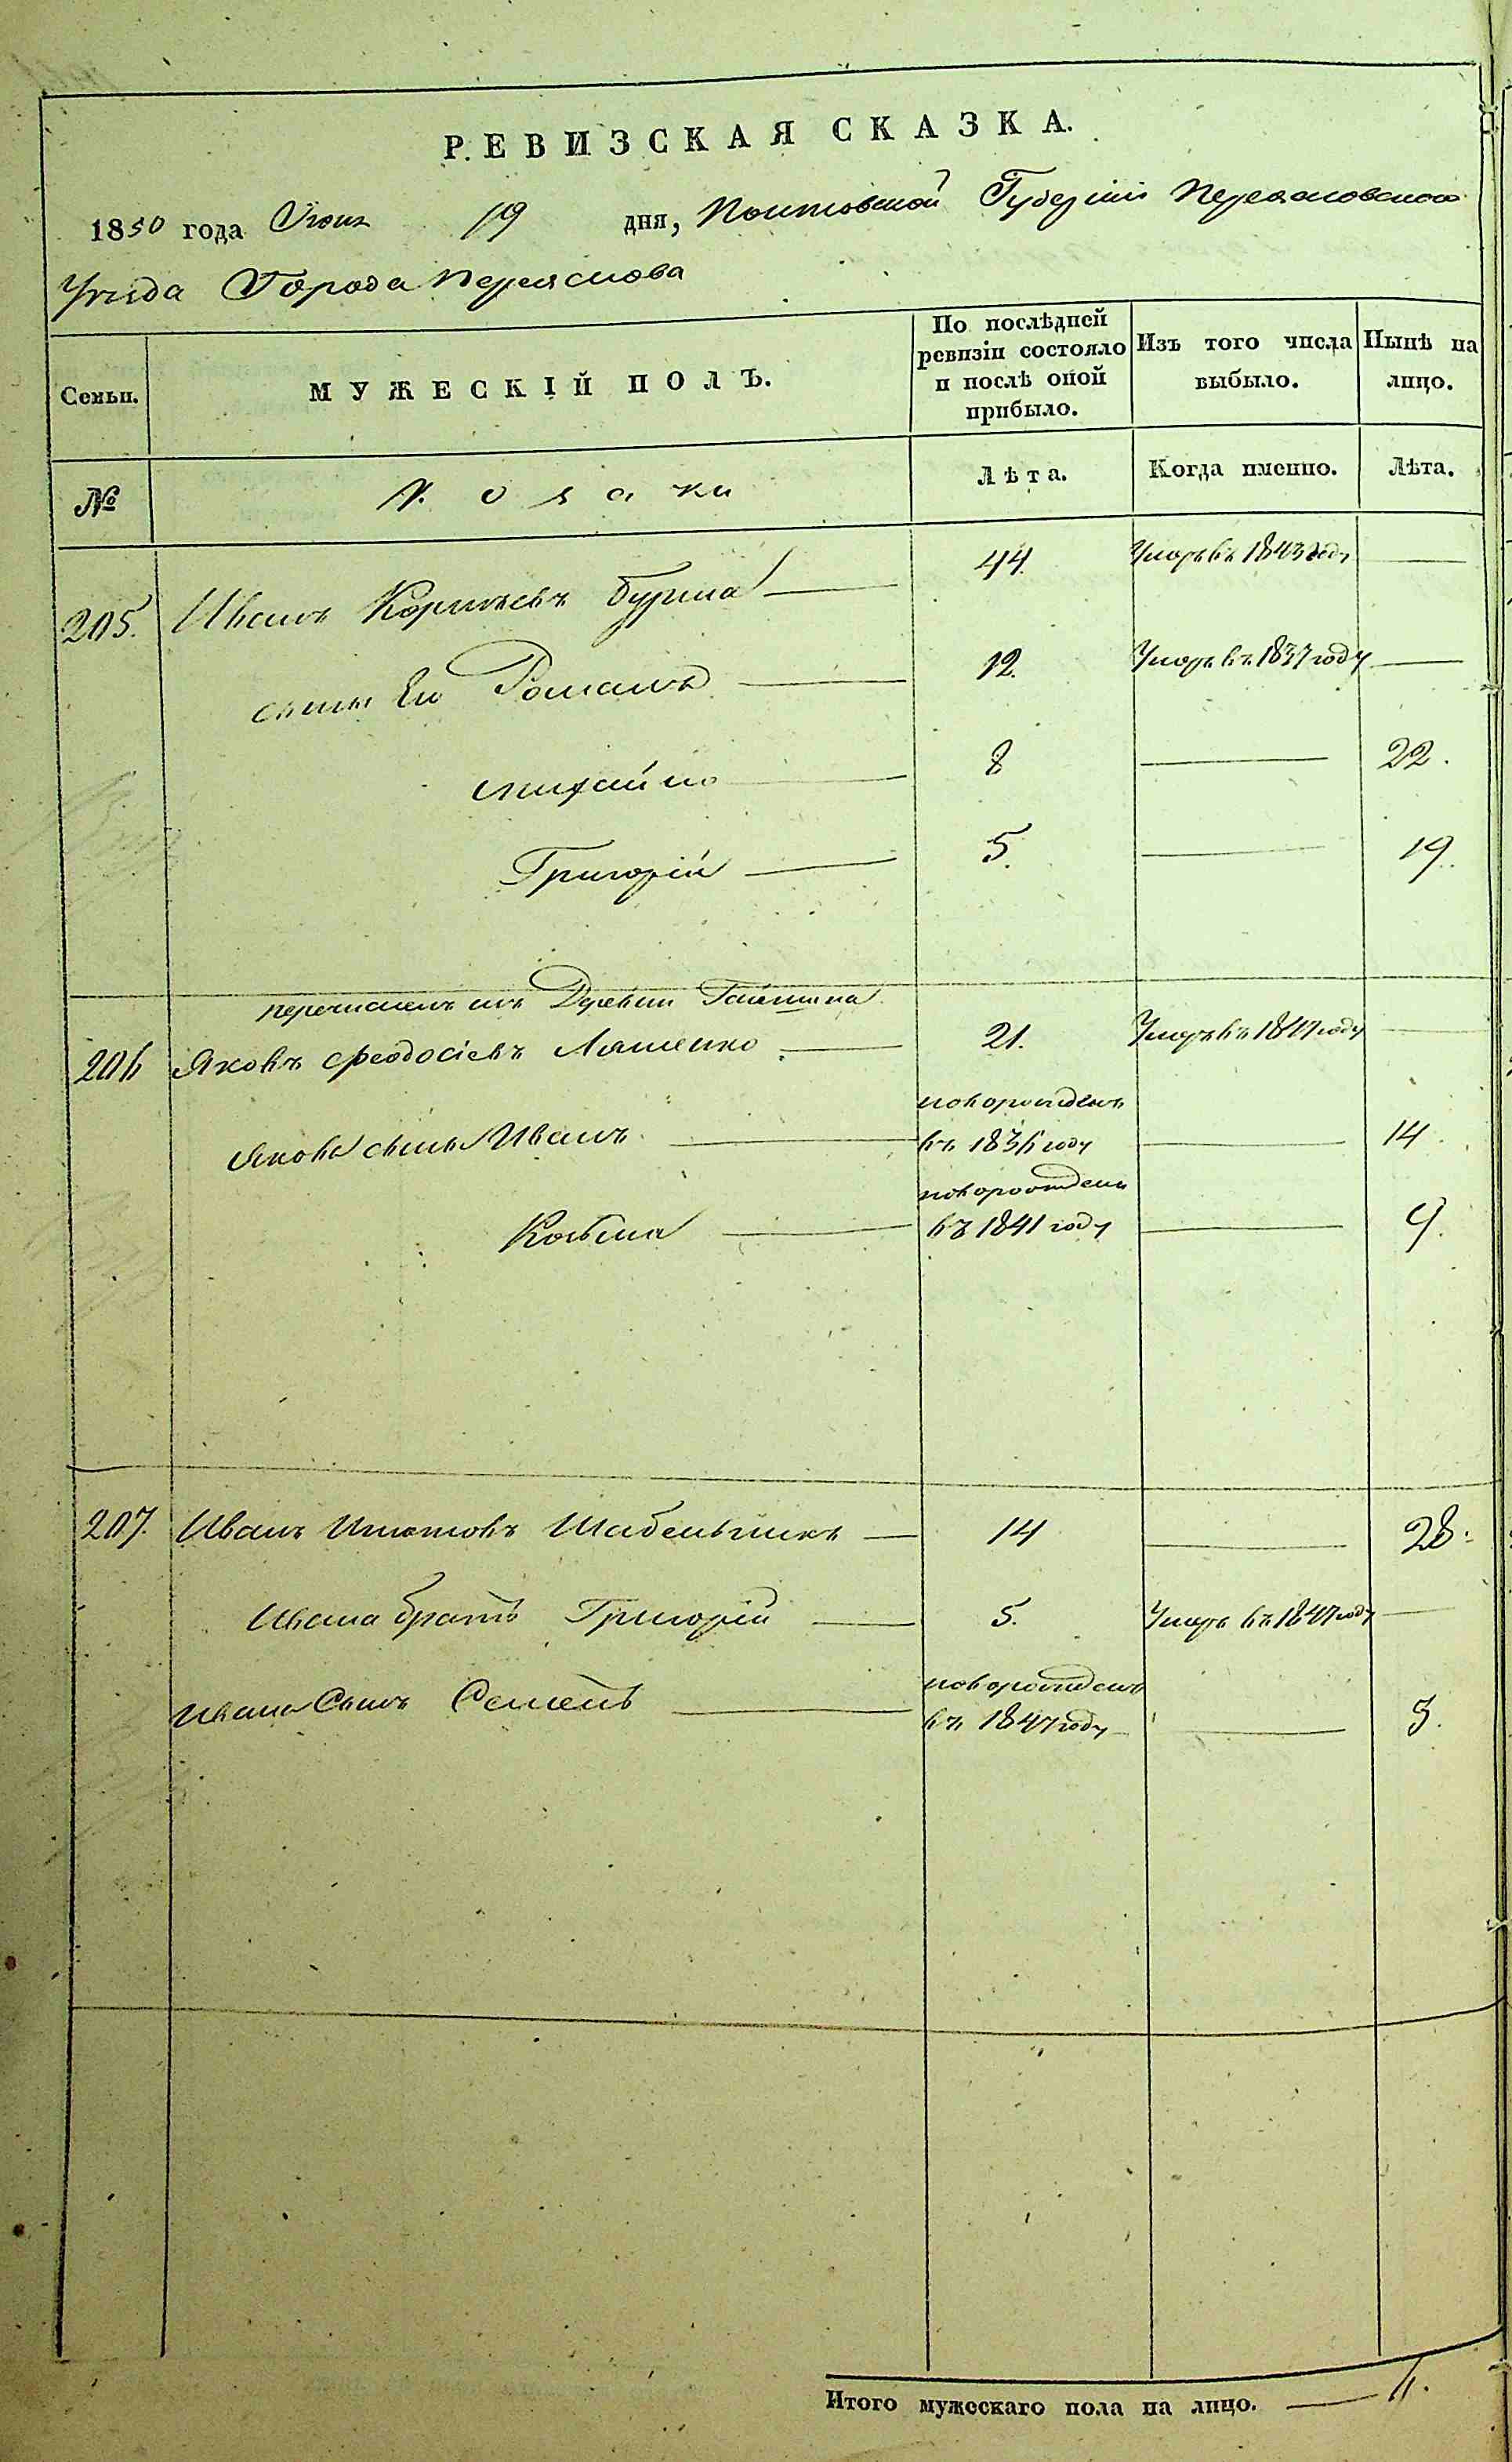 РЕВИЗСКАЯ СКАЗКА.
1850 года Июня 19 дня, Полтавской Губерніи Переяславскаго
Уезда Города Переяслова
Семьи.
МУЖЕСКІЙ ПОЛЪ.
По послѣдней ревизіи состояло и послѣ оной прибыло.
Изъ того числа выбыло.
Нынѣ на лицо.
№ Козаки Лѣта. Когда именно. Лѣта.
205. Иванъ Корнѣевъ Бурма 44. Умеръ въ 1843 году
сынъ Его Романъ 12. Умеръ въ 1837 году
Михайло 8 22.
Григорій 5. 19.
перечисленъ изъ Деревни
206 Яковъ Феодосіевъ Ляшенко 21. Умеръ въ 1847 году
Якова сынъ Иванъ новорожденъ въ 1836 году 14.
Козьма новорожденъ въ 1841 году 9.
207. Иванъ Игнатовъ Шабельникъ 14 28.
Ивана братъ Григорій 5. Умеръ въ 1847 году
Ивана Сынъ Семенъ новорожденъ въ 1847 году 3.
Итого мужескаго пола на лицо. 6.